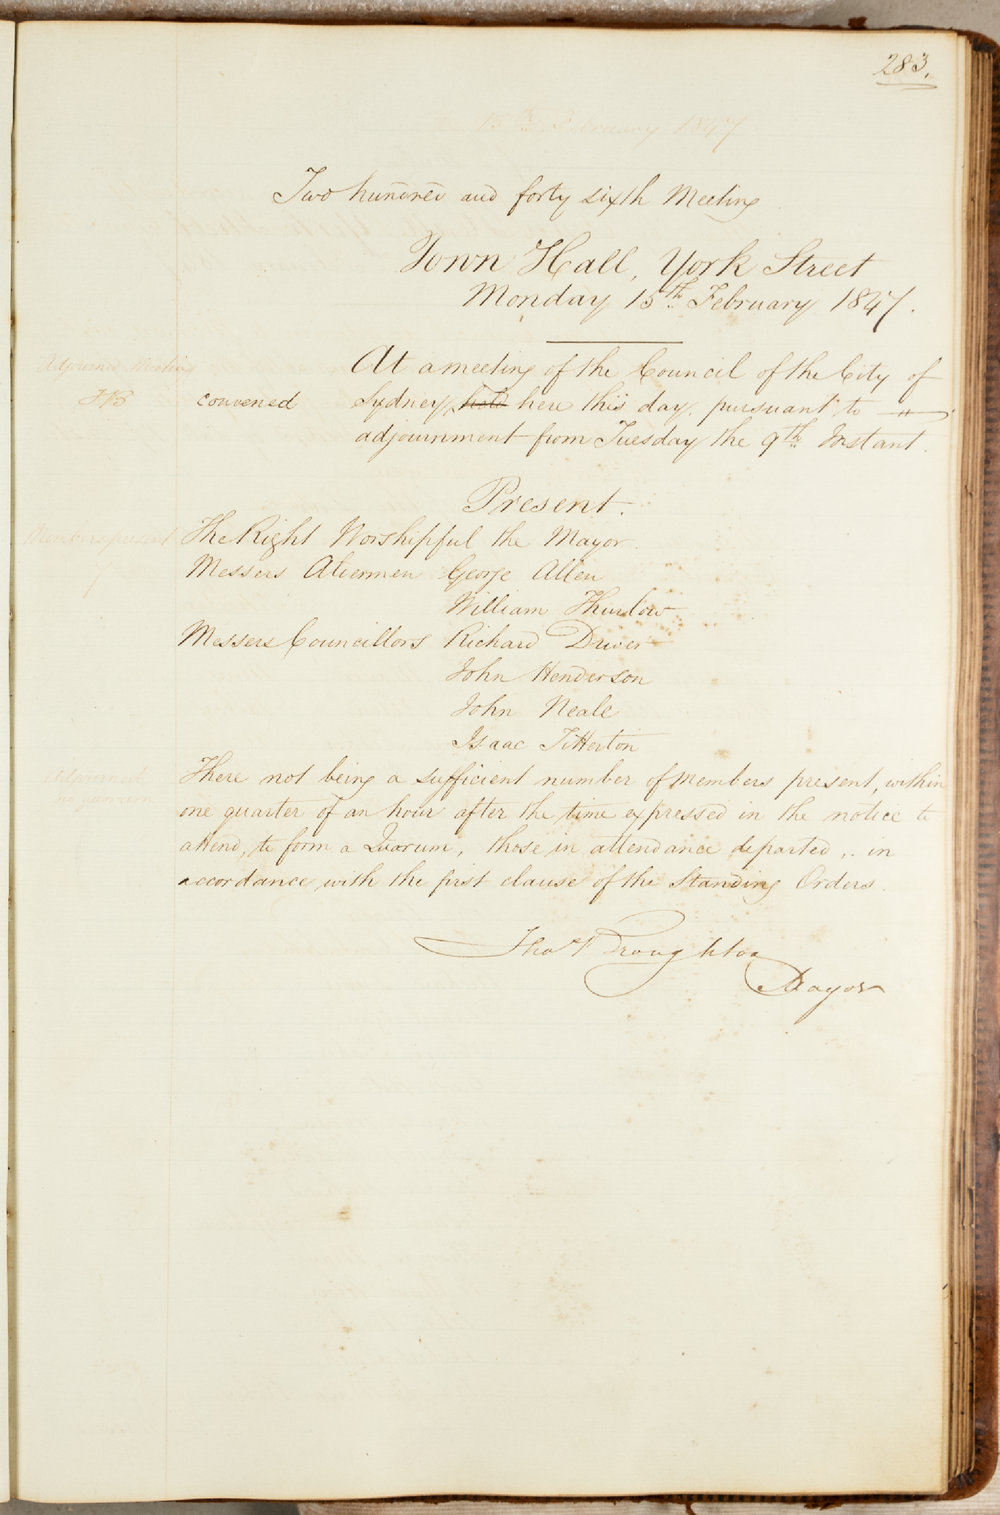 283.
15th February 1847
Two hundred and forty sixth Meeting
Town Hall, York Street
Monday 15th February 1847.
Adjourned Meeting
TB
At a meeting of the Council of the City of
convened Sydney, held here this day, pursuant to
adjournment from Tuesday the 9th Instant.
Present.
Members present
The Right Worshipful the Mayor.
Messers Aldermen George Allen
William Thurlow
Messers Councillors Richard Driver
John Henderson
John Neale
Isaac Titterton
Adjourned
no quorum
There not being a sufficient number of members present, within
one quarter of an hour after the time expressed in the notice to
attend, to form a Quorum, those in attendance departed, in
accordance with the first clause of the Standing Orders.
Thos Broughton
Mayor